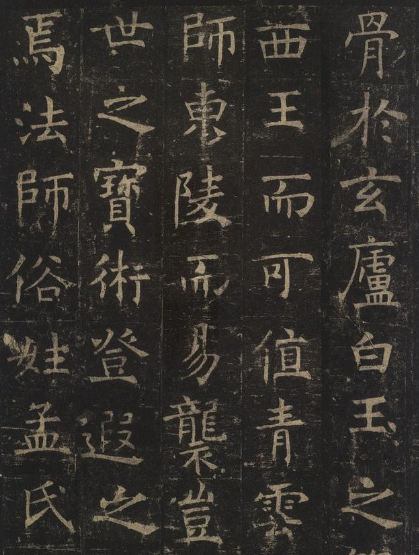 骨於玄廬白玉之
西王而可值青雲
師東陵而易襲豈
世之寶術登遐之
焉法師俗姓孟氏